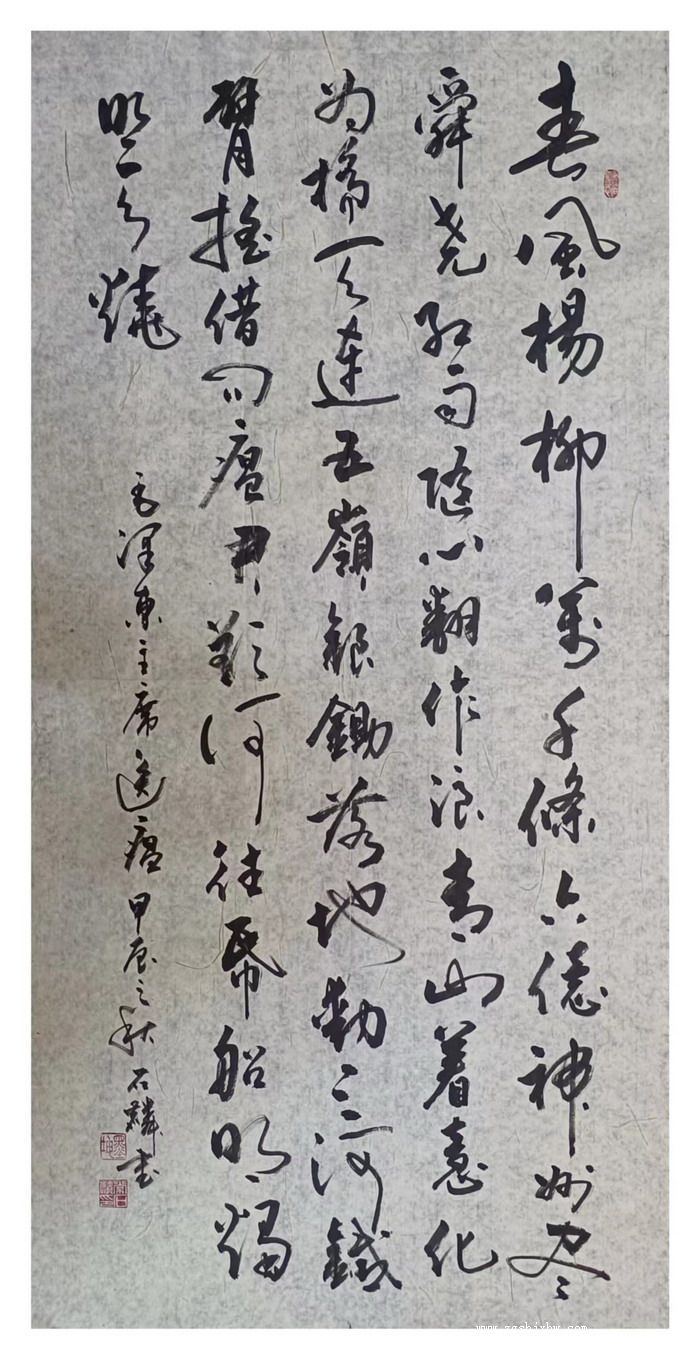 春風楊柳萬千條六億神州盡
舜尧红雨隨心翻作浪青山着意化
为橋天連五嶺銀鋤落地動三河鐵
臂摇借问瘟君欲何往帋船明燭
照天燒
毛澤東主席送瘟甲辰之秋石麟書